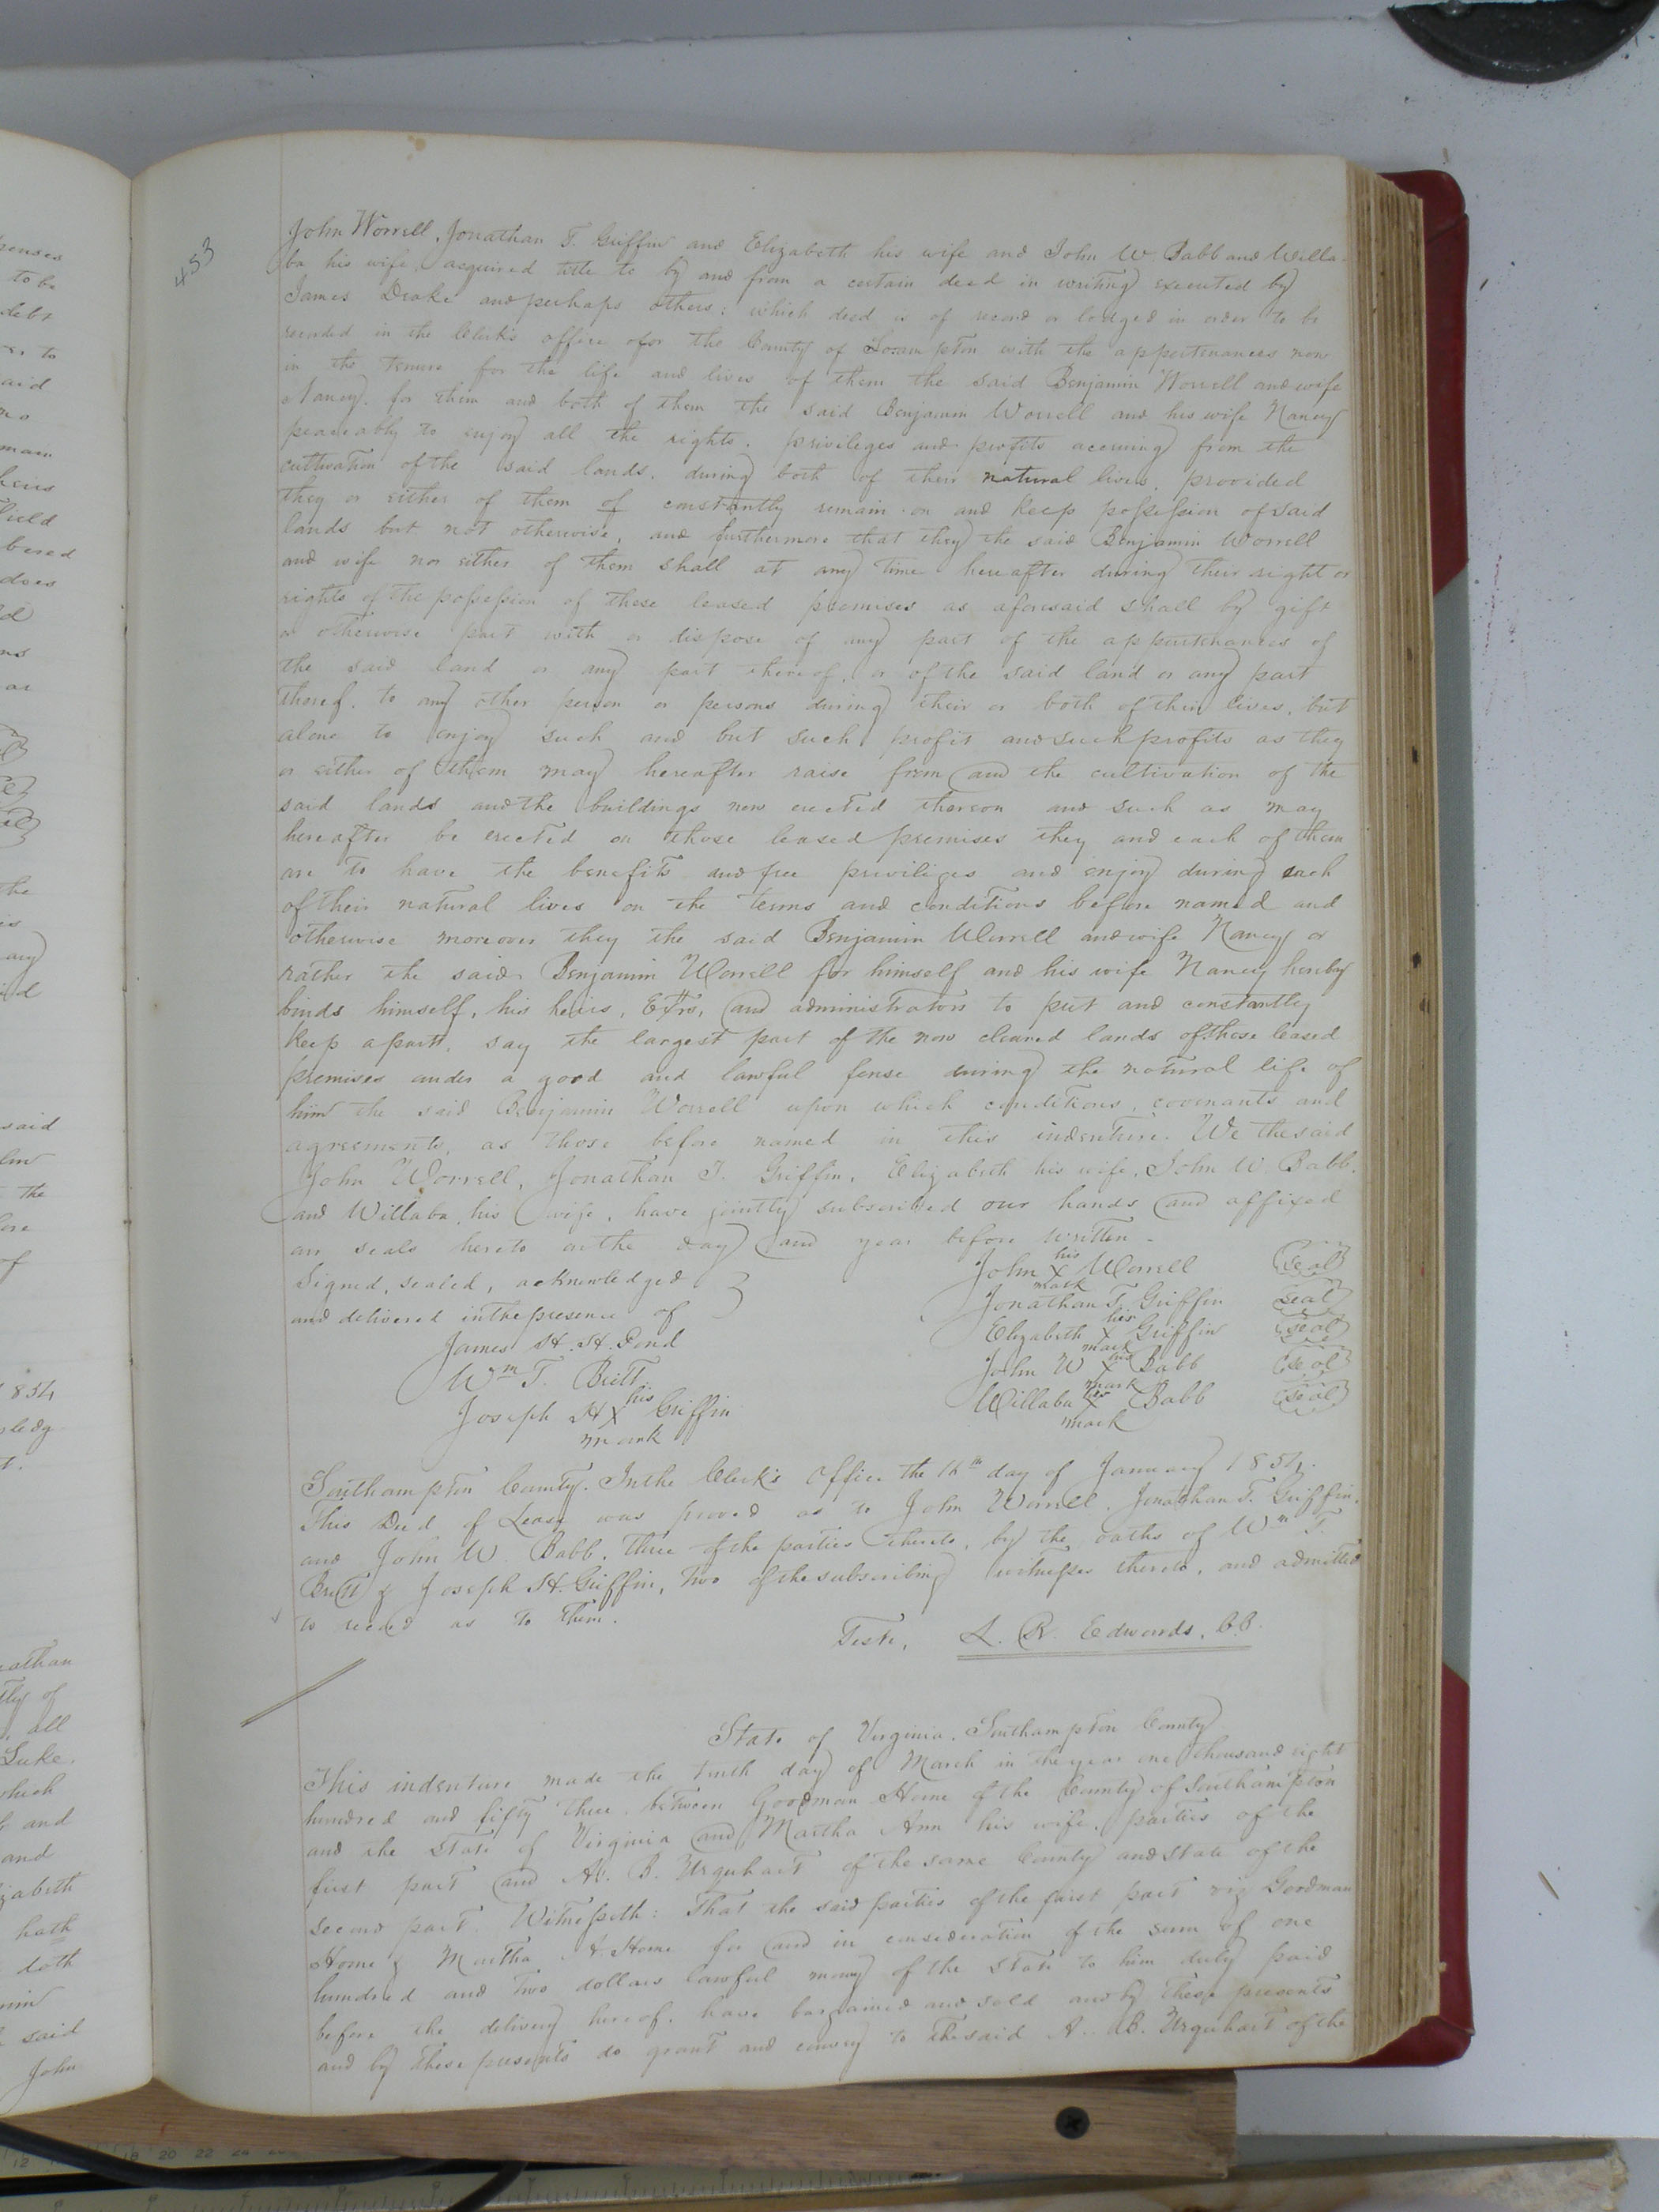 453
John Worrell, Jonathan T. Griffin and Elizabeth his wife and John W. Babb and Willa-
ba his wife, acquired title to by and from a certain deed in writing executed by
James Drake and perhaps others; which deed is of record or lodged in order to be
recorded in the Clerk's office of or the County of Southampton with the appertenances now
in the tenure for the life and lives of them the said Benjamin Worrell and wife
Nancy, for them and both of them the said Benjamin Worrell and his wife Nancy
peaceably to enjoy all the rights, privileges and profits accruing from the
cultivation of the said lands, during both of their natural lives, provided
they or either of them of constantly remain on and keep possession of said
lands but not otherwise, and furthermore that they the said Benjamin Worrell
and wife nor either of them shall at any time hereafter during their right or
rights of the possession of these leased premises as aforesaid shall by gift
or otherwise part with or dispose of any part of the appurtenances of
the said land or any part thereof, or of the said land or any part
thereof, to any other person or persons during their or both of their lives, but
alone to enjoy such and but such profit and such profits as they
or either of them may hereafter raise from and the cultivation of the
said lands and the buildings now erected thereon and such as may
hereafter be erected on those leased premises they and each of them
are to have the benefits and free priviliges and enjoy during each
of their natural lives on the terms and conditions before named and
otherwise moreover they the said Benjamin Worrell and wife Nancy or
rather the said Benjamin Worrell for himself and his wife Nancy hereby
binds himself, his heirs, Extrs, and administrators to put and constantly
keep apart, say the largest part of the now cleared lands of those leased
premises under a good and lawful fense during the natural life of
him the said Benjamin Worrell upon which conditions, covenants and
agreements, as those before named in this indenture. We the said
John Worrell, Jonathan T. Griffin, Elizabeth his wife, John W. Babb,
and Willaba, his wife, have jointly subscribed our hands and affixed
our seals hereto on the day and year before written.
Signed, sealed, acknowledged
and delivered in the presence of
James H. H. Pond
Wm T. Britt
Joseph H his X mark Griffin
John his X mark Worrell seal
Jonathan T. Griffin seal
Elizabeth her X mark Griffin seal
John W his X mark Babb seal
Willaba her X mark Babb seal
Southampton County. In the Clerk's Office the 16th day of January 1854.
This Deed of Lease was proved as to John Worrell, Jonathan T. Griffin,
and John W. Babb, three of the parties thereto, by the oaths of Wm T.
Britt & Joseph H. Griffin, two of the subscribing witnesses thereto, and admitted
to record as to them.
Teste, L. R. Edwards, C.C.
State of Virginia, Southampton County
This indenture made the tenth day of March in the year one thousand eight
hundred and fifty three, between Goodman Horne of the County of Southampton
and the State of Virginia and Martha Ann his wife, parties of the
first part and A. B. Urquhart of the same County and State of the
second part. Witnesseth: That the said parties of the first part viz Goodman
Horne & Martha A. Horne for and in consideration of the sum of one
hundred and two dollars lawful money of the State to him duly paid
before the delivery hereof, have bargained and sold and by these presents
and by these presents do grant and convey to the said A. B. Urquhart of the